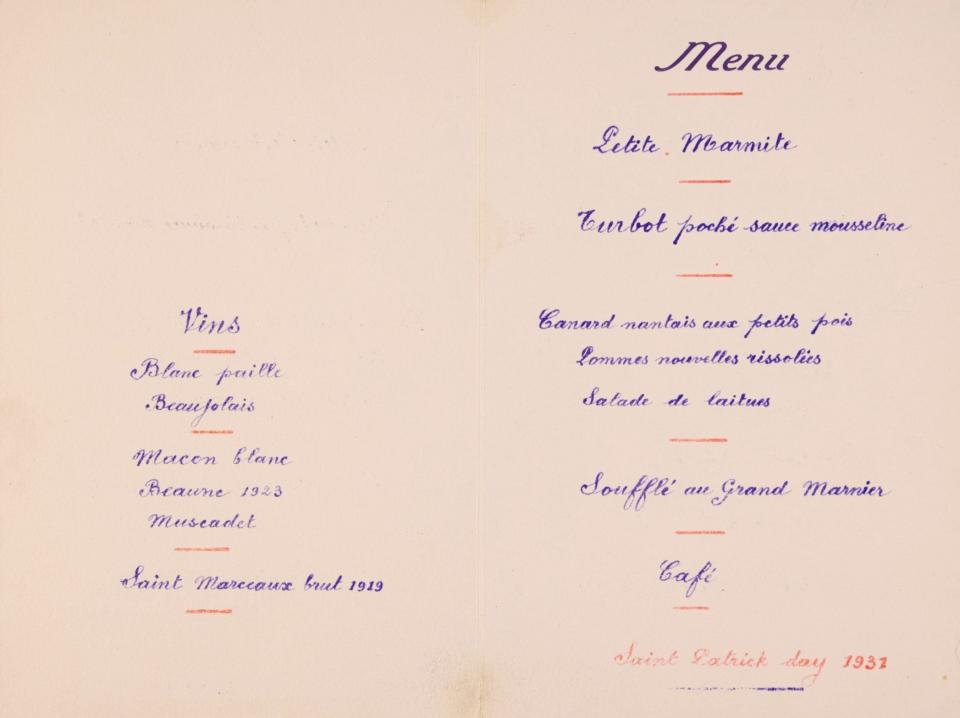 Vins
Blanc paille
Beaujolais
Macon blanc
Beaune 1923
Muscadet
Saint Marceaux brut 1919
Menu
Petite Marmite
Turbot poché sauce mousseline
Canard nantais aux petits pois
Pommes nouvelles rissolées
Salade de laitues
Soufflé au Grand Marnier
Café
Saint Patrick day 1931